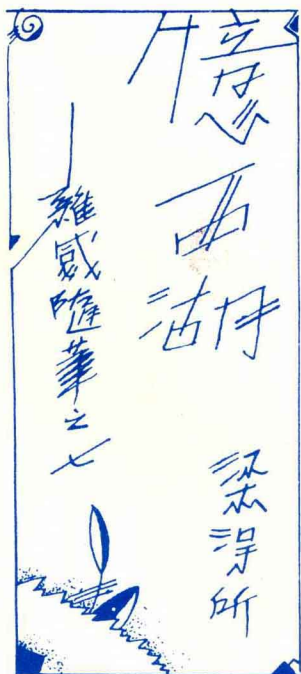 憶西湖
雜感隨筆之七
梁得所